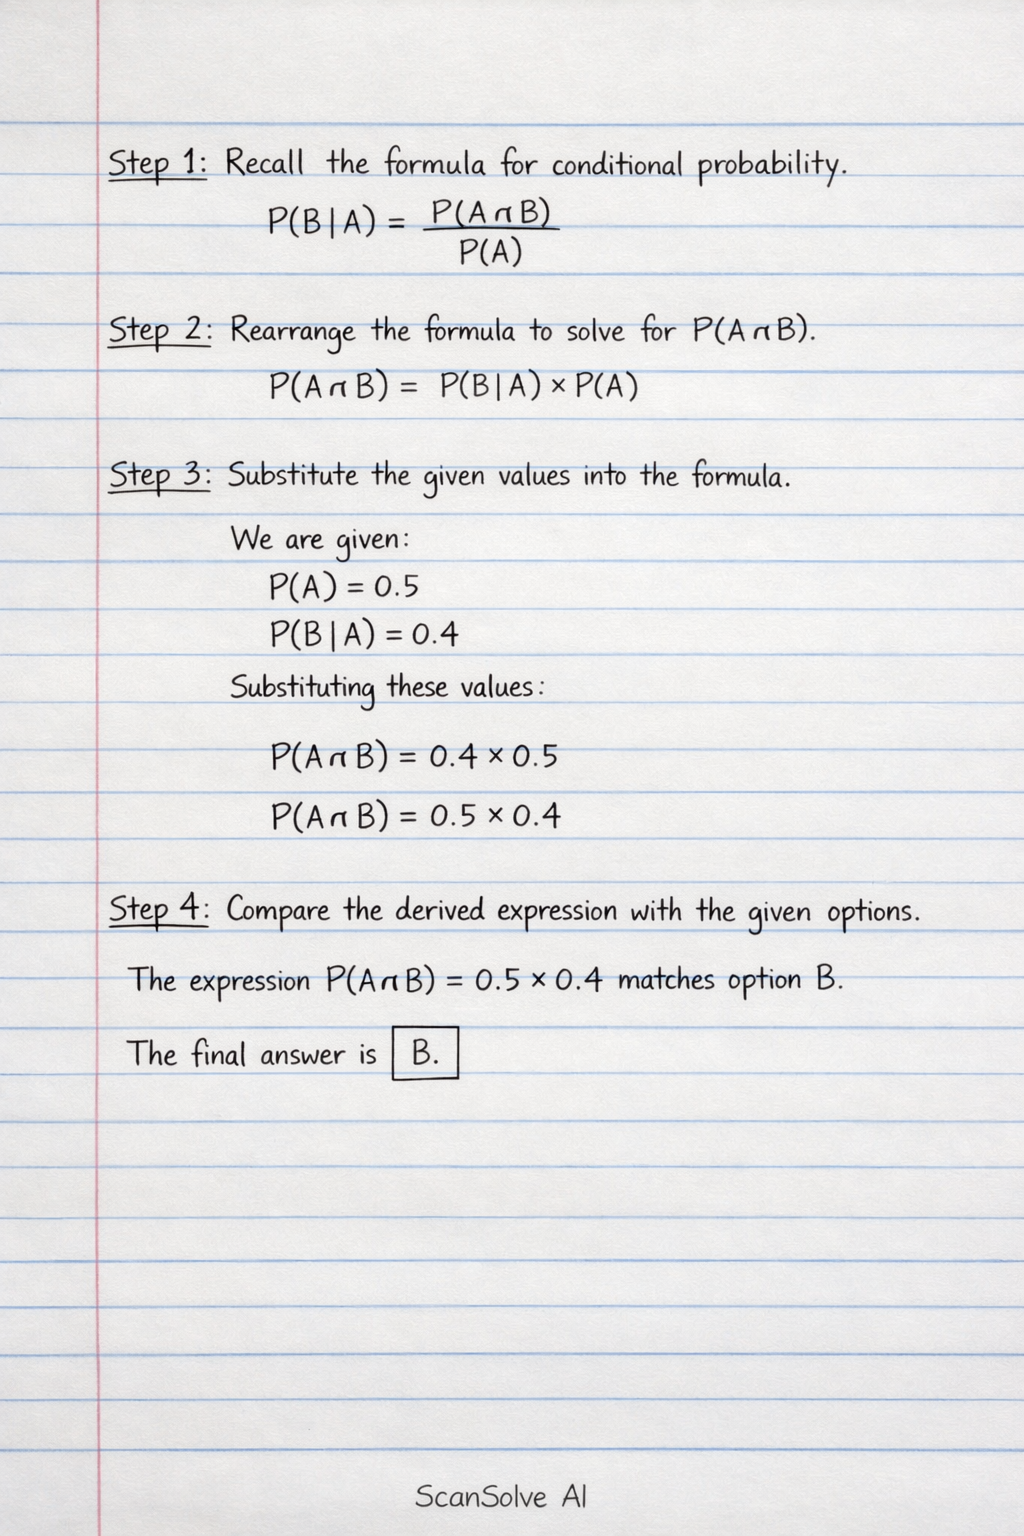 Step 1: Recall the formula for conditional probability.
P(B|A) = P(A∩B)
P(A)
Step 2: Rearrange the formula to solve for P(A∩B).
P(A∩B) = P(B|A) × P(A)
Step 3: Substitute the given values into the formula.
We are given:
P(A) = 0.5
P(B|A) = 0.4
Substituting these values:
P(A∩B) = 0.4 × 0.5
P(A∩B) = 0.5 × 0.4
Step 4: Compare the derived expression with the given options.
The expression P(A∩B) = 0.5 × 0.4 matches option B.
The final answer is B.
ScanSolve AI